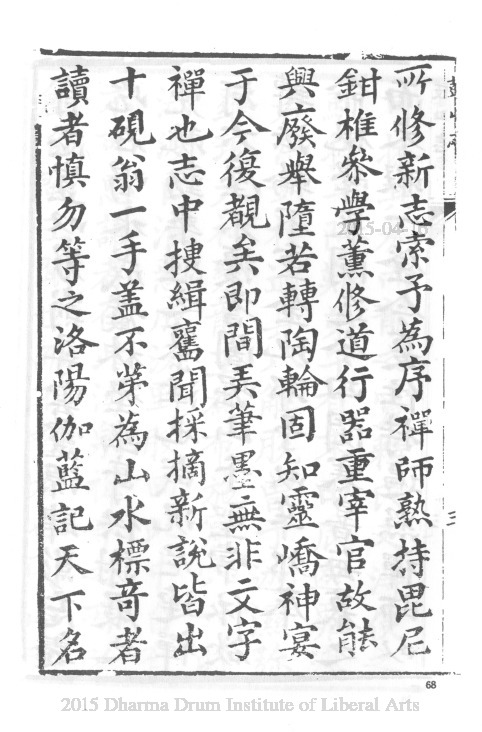 所修新志索予為序禪師熟持毘尼
鉗椎叅學薰修道行噐重宰官故能
興廢舉墮若轉陶輪固知靈嶠神宴
于今復覩矣即間弄筆墨無非文字
禪也志中摉緝舊聞採摘新說皆出
十硯翁一手盖不苐為山水標竒者
讀者慎勿等之洛陽伽藍記天下名
三
68
2015-04-16
2015 Dharma Drum Institute of Liberal Arts